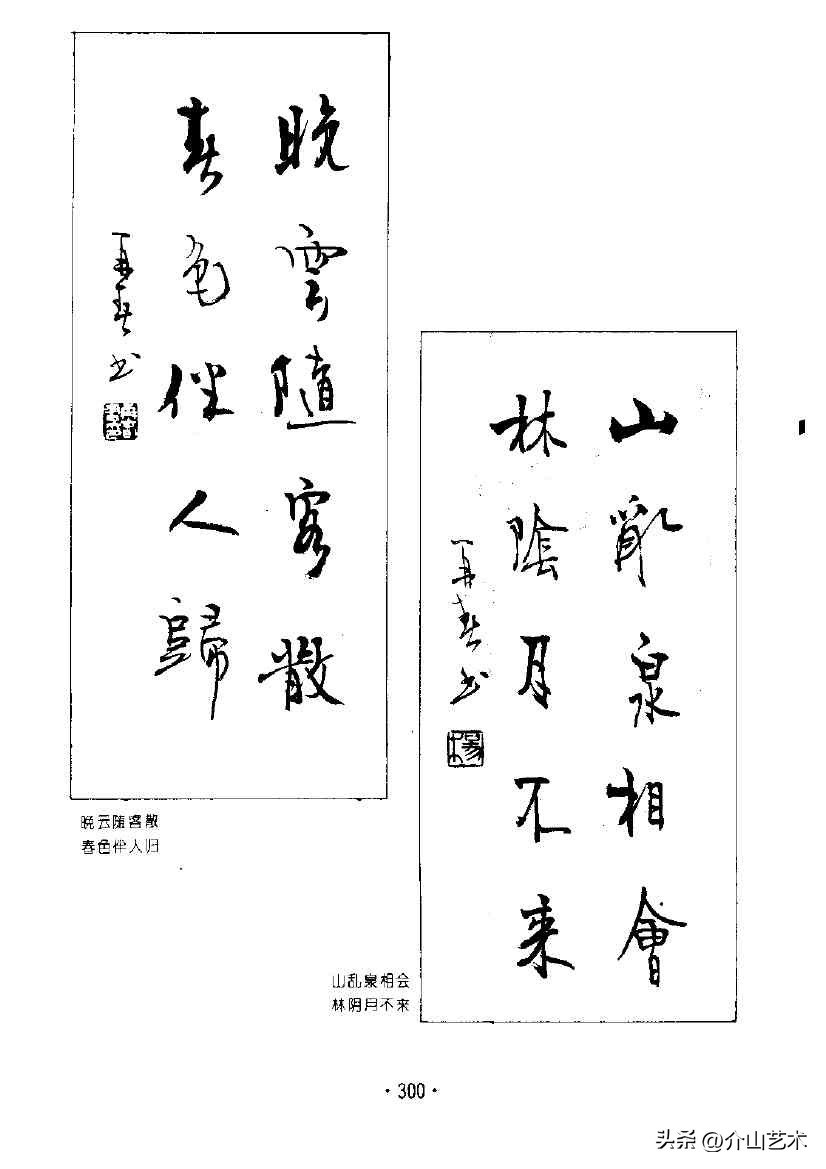 晚雲隨客散
春色伴人歸
再春书
晚云随客散
春色伴人归
山亂泉相會
林陰月不来
再春书
山乱泉相会
林阴月不来
·300·
头条@介山艺术